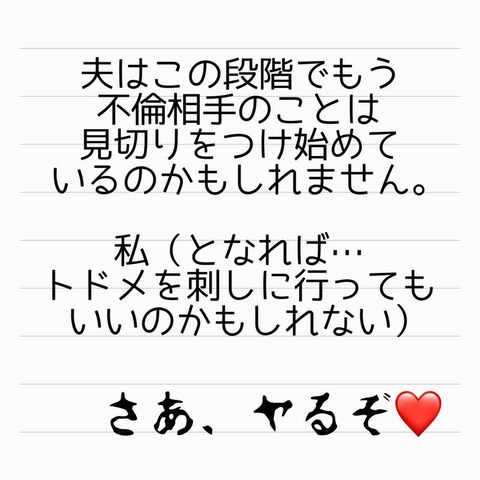 夫はこの段階でもう
不倫相手のことは
見切りをつけ始めて
いるのかもしれません。
私（となれば…
トドメを刺しに行っても
いいのかもしれない）
さあ、ヤるぞ❤️